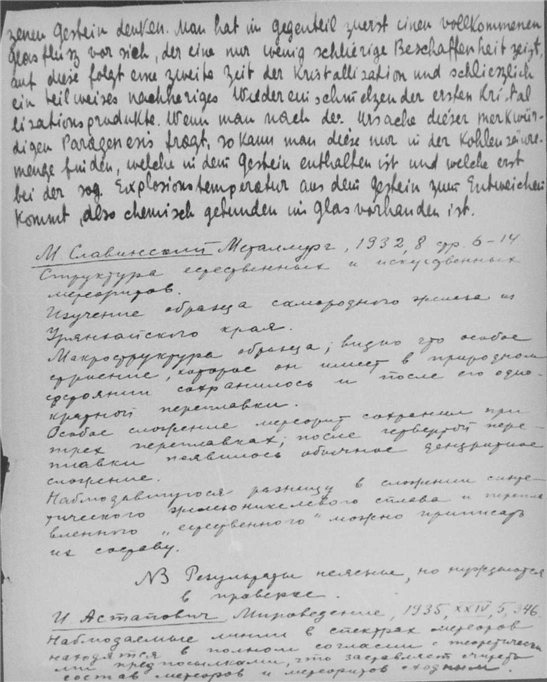 zenen Gestein denken. Man hat in gegenteil zuerst einen vollkommenen
Glasfluß vor sich, der eine nur wenig schlierige Beschaffenheit zeigt,
auf diese folgt eine zweite Zeit der Kristallization und schliesslich
ein teilweises nachheriges Wiedereinschmelzen der ersten Kristal
lizationsprodukte. Wenn man nach der Ursache dieser merkwür-
digen Paragenesis fragt, so kann man diese nur in der Kohlensäure-
menge finden, welche in dem Gestein enthalten ist und welche erst
bei der sog. Explosionstemperatur aus dem Gestein zum Entweichen
kommt, also chemisch gebunden im Glas vorhanden ist.
М. Славинский Металлург, 1932, 8 стр. 6-14
Структура естественных и искусственных
метеоритов.
Изучение образца самородного железа из
Урянхайского края.
Макроструктура образца; видно что особое
строение, которое он имеет в природном
состоянии сохранилось и после его одно-
кратной переплавки.
Особое сложение метеорит сохранил при
трех переплавках; после четвертой пере-
плавки появилось обычное дендритное
сложение.
Наблюдавшуюся разницу в сложении синте-
тического железоникелевого сплава и перепла
вленного "естественного" можно приписать
их составу.
NB Результаты неясные, но нуждаются
в проверке.
И. Астапович Мироведение, 1935, XXIV, 5, 346.
Наблюдаемые линии в спектрах метеоров
находятся в полном согласии с теоретически
ми предпосылками, что заставляет считать
состав метеоров и метеоритов сходным.